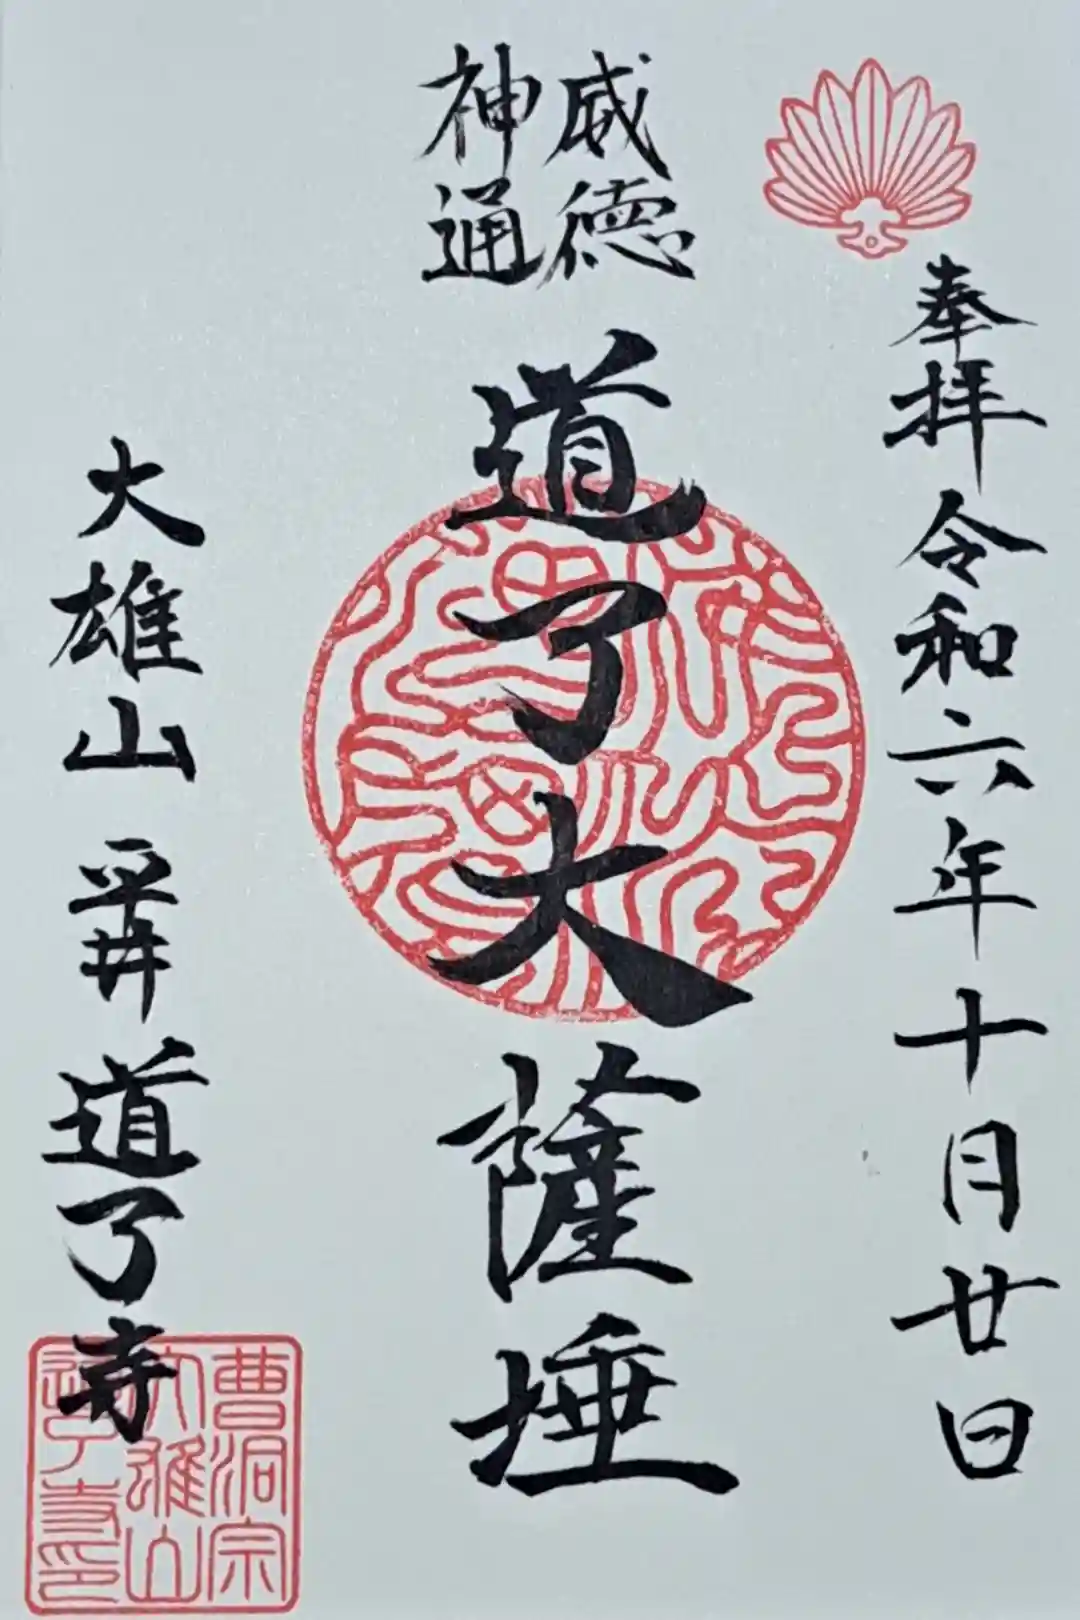 奉拝 令和六年十月廿日
威徳
神通
道了大薩埵
大雄山 平井 道了寺
曹洞宗
大雄山
道了寺印